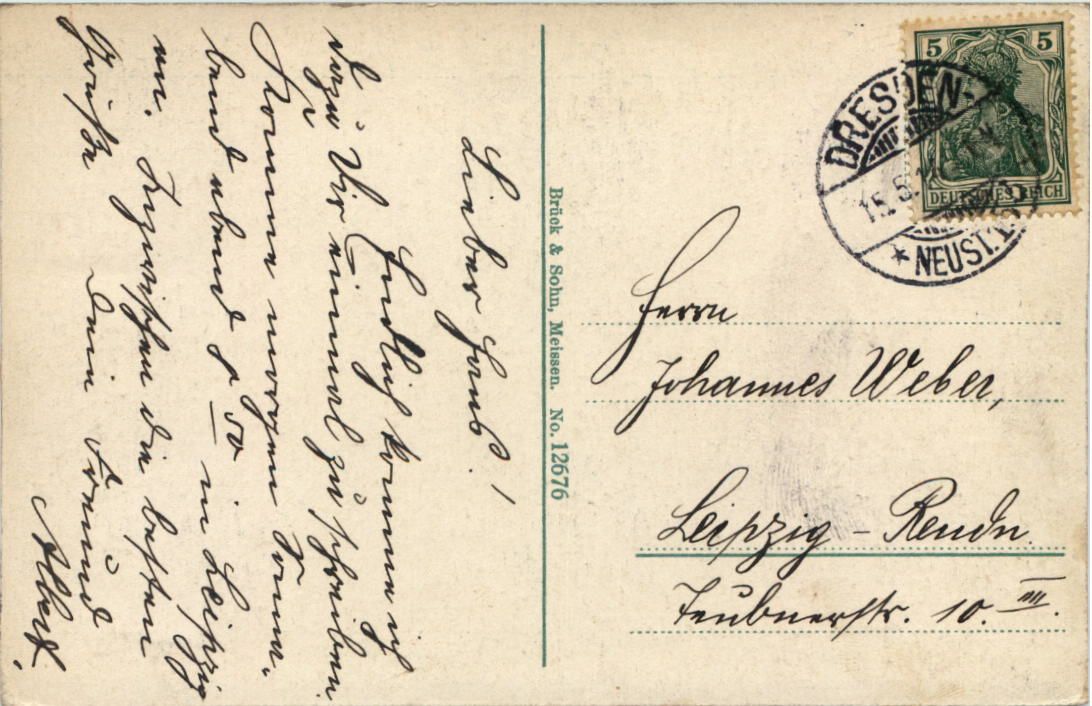 Lieber Hans!
Endlich komme ich
dazu Dir einmal zu schreiben.
Komme morgen Sonn-
abend abend 8 50 in Leipzig
an. Inzwischen die besten
Grüße Dein Freund
Albert.
Brück & Sohn, Meissen. No. 12676
5 5
DEUTSCHES REICH
DRESDEN-
15.5.
* NEUST.
Herrn
Johannes Weber,
Leipzig - Reudn.
Teubnerstr. 10. III.